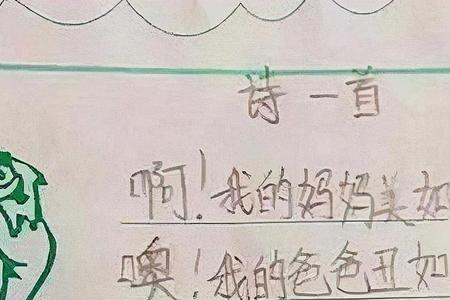 诗一首
啊！我的妈妈美如
噢！我的爸爸丑如